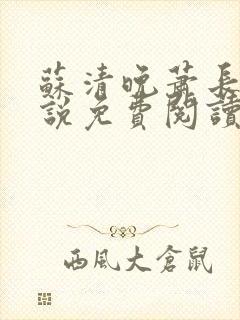 蘇清晚蕭長
說免費閱讀
西風大倉鼠